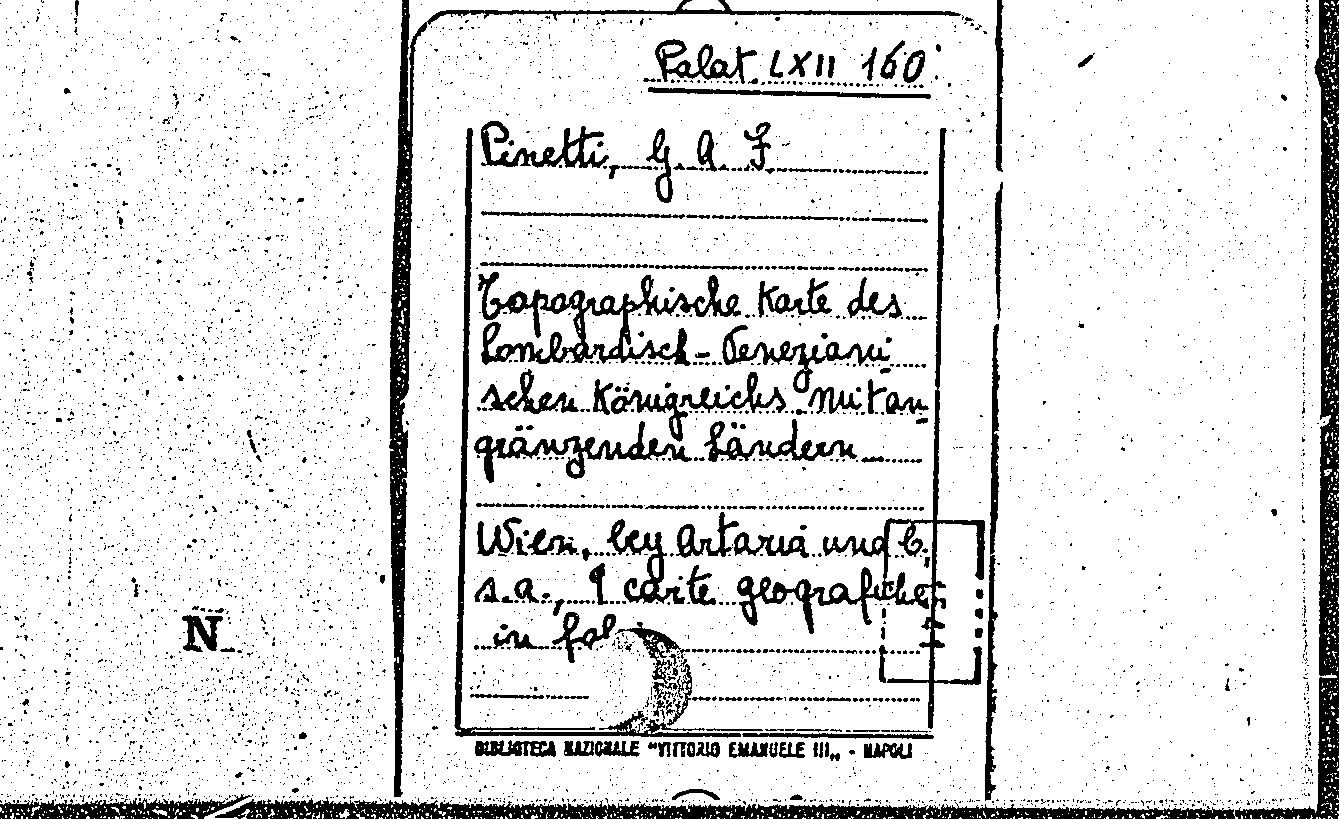 Palat. LXII 160
Pinetti, G. A. F.
Topographische Karte des
Lombardisch-Veneziani
schen Königreichs mit an_
gränzenden Ländern_
Wien, bey Artaria und C.
s.a., 9 carte geografiche
in fol
N_
BIBLIOTECA NAZIONALE "VITTORIO EMANUELE III„ - NAPOLI